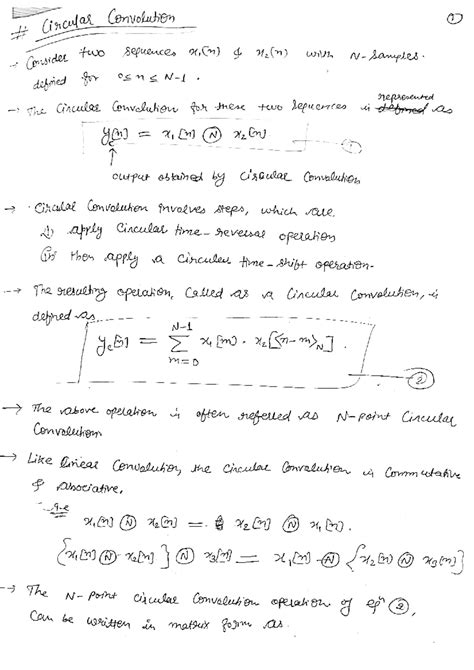 # Circular Convolution
①
→ Consider two sequences x₁(n) & x₂(n) with N-samples.
defined for 0≤n≤N-1.
→ The Circular Convolution for these two sequences is represented as
y꜀[n] = x₁[n] Ⓝ x₂[n]
①
↑
output obtained by Circular Convolution
→ Circular Convolution involves steps, which are
i) apply Circular time-reversal operation
ii) then apply a Circular time-shift operation.
→ The resulting operation, Called as a Circular Convolution, is
defined as
y꜀[n] = ∑_{m=0}^{N-1} x₁[m] · x₂[⟨n-m⟩_N].
②
→ The above operation is often referred as N-point Circular
Convolution
→ Like linear Convolution, the circular Convolution is Commutative
& Associative,
i.e
x₁[n] Ⓝ x₂[n] = x₂[n] Ⓝ x₁[n].
{x₁[n] Ⓝ x₂[n]} Ⓝ x₃[n] = x₁[n] Ⓝ {x₂[n] Ⓝ x₃[n]}
→ The N-point circular Convolution operation of eqⁿ ②,
Can be written in matrix form as